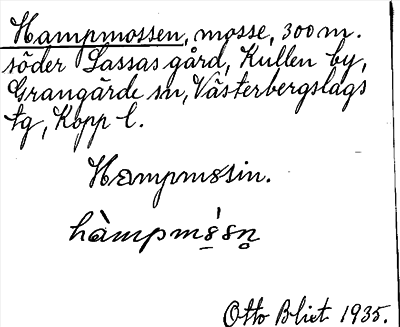 Hampmossen, mosse, 300 m.
söder Lassas gård, Kullen by,
Grangärde sn, Västerbergslags
tg, Kopp l.
Hampmosin.
hàmpms̱̀sn̥
Otto Blixt 1935.